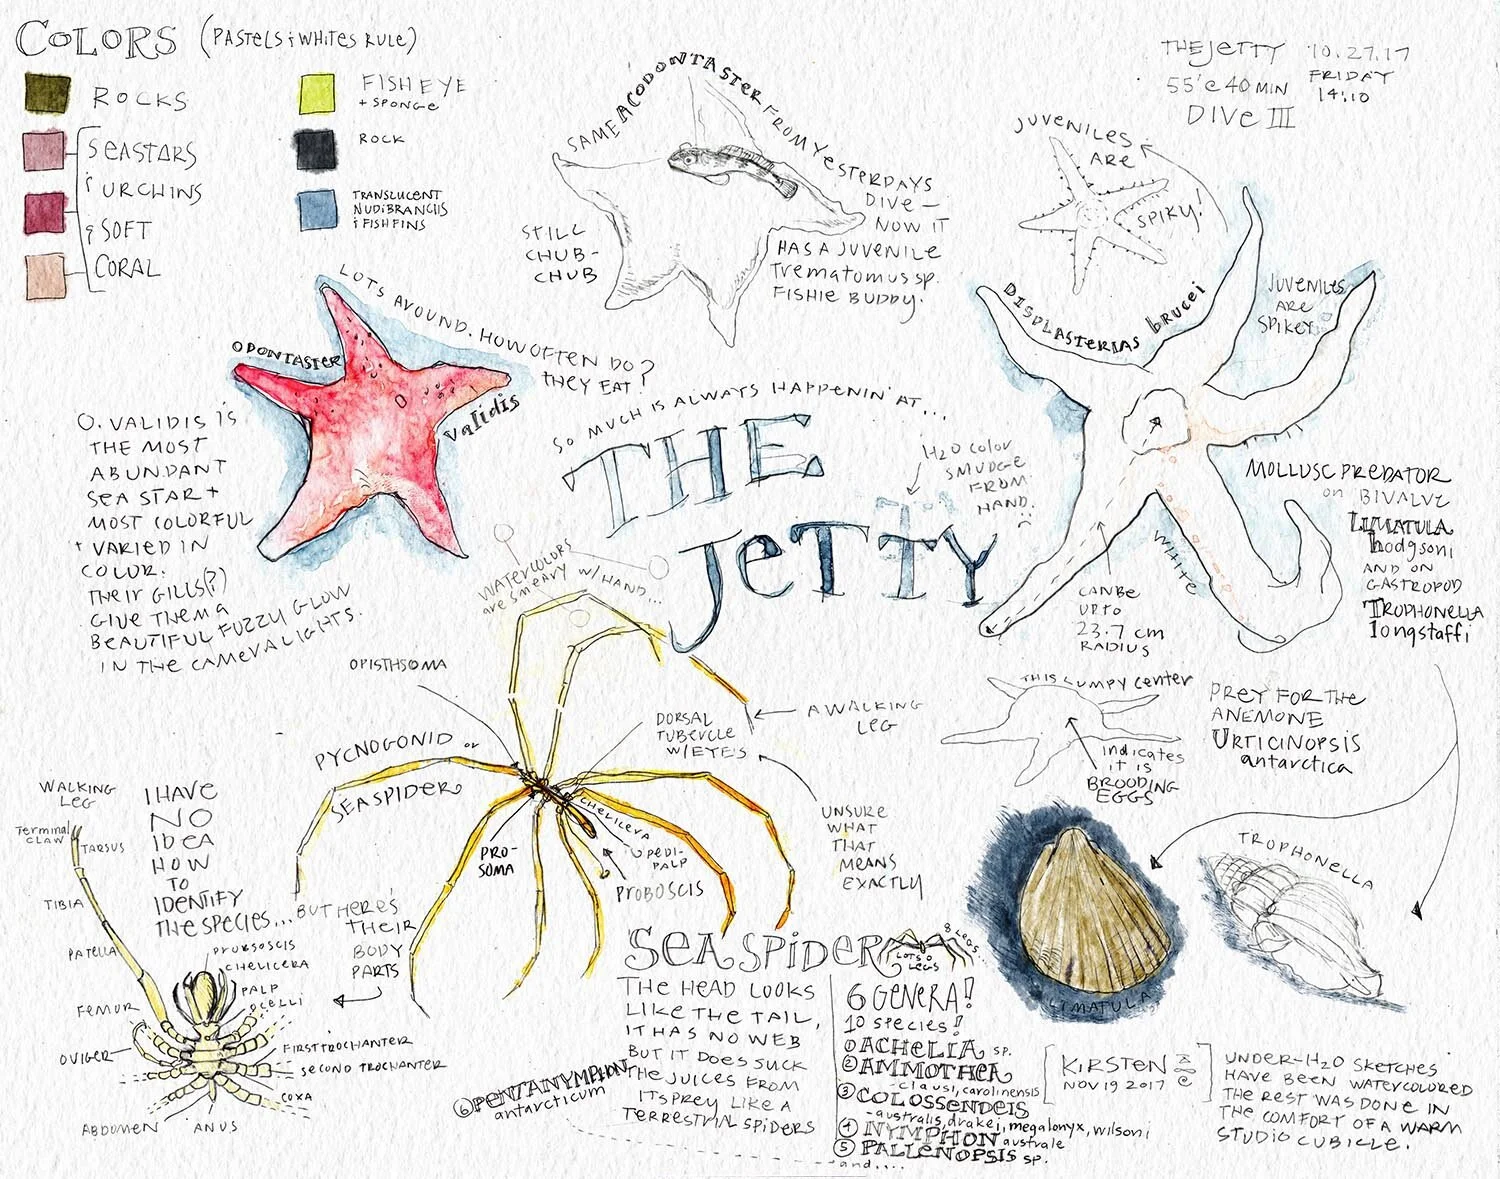 COLORS (PASTELS & WHITES RULE)
ROCKS
SEASTARS
& URCHINS
& SOFT
CORAL
FISH EYE
+ SPONGE
ROCK
TRANSLUCENT
NUDIBRANCHS
& FISH FINS
SAME ACODONTASTER FROM YESTERDAYS
DIVE —
NOW IT
HAS A JUVENILE
Trematomus sp.
FISHIE BUDDY.
STILL
CHUB-
CHUB
THE JETTY 10.27.17
55' @ 40 MIN FRIDAY
14:10
DIVE III
JUVENILES
ARE
SPIKY!
DISPLASTERIAS brucei
JUVENILES
ARE
SPIKEY
LOTS AROUND. HOW OFTEN DO
THEY EAT?
ODONTASTER
Validis
O. VALIDIS IS
THE MOST
ABUNDANT
SEA STAR +
MOST COLORFUL
+ VARIED IN
COLOR.
THEIR GILLS(?)
GIVE THEM A
BEAUTIFUL FUZZY GLOW
IN THE CAMERA LIGHTS.
SO MUCH IS ALWAYS HAPPENIN' AT...
THE
JETTY
H2O COLOR
SMUDGE
FROM
HAND.
WATERCOLORS
are SMEARY W/ HAND...
MOLLUSC PREDATOR
on BIVALVE
LIMATULA
hodgsoni
AND ON
GASTROPOD
TROPHONELLA
longstaffi
WHITE
CAN BE
UP TO
23.7 cm
RADIUS
THIS LUMPY CENTER
indicates
it is
BROODING
EGGS
PREY FOR THE
ANEMONE
URTICINOPSIS
antarctica
OPISTHSOMA
DORSAL
TUBERCLE
W/ EYE'S
A WALKING
LEG
PYCNOGONID or
SEA SPIDER
CHELICERA
PEDI-
PALP
PRO-
SOMA
PROBOSCIS
UNSURE
WHAT
THAT
MEANS
EXACTLY
WALKING
LEG
Terminal
CLAW
TARSUS
TIBIA
PATELLA
FEMUR
OVIGER
ABDOMEN
ANUS
COXA
SECOND TROCHANTER
FIRST TROCHANTER
OCELLI
PALP
CHELICERA
PROBOSCIS
I HAVE
NO
IDEA
HOW
TO
IDENTIFY
THE SPECIES... BUT HERE'S
THEIR
BODY
PARTS
SEA SPIDER
8 LEGS...
LOTS O
LEGS
THE HEAD LOOKS
LIKE THE TAIL,
IT HAS NO WEB
BUT IT DOES SUCK
THE JUICES FROM
ITS PREY LIKE A
TERRESTRIAL SPIDERS
6 GENERA!
10 species!
① ACHELIA sp.
② AMMOTHEA
- clausi, carolinensis
③ COLOSSENDEIS
- australis, drakei, megalonyx, wilsoni
④ NYMPHON australe
⑤ PALLENOPSIS sp.
and....
⑥ PENTANYMPHON
antarcticum
LIMATULA
TROPHONELLA
KIRSTEN
NOV 19 2017
UNDER-H2O SKETCHES
HAVE BEEN WATERCOLORED
THE REST WAS DONE IN
THE COMFORT OF A WARM
STUDIO CUBICLE.